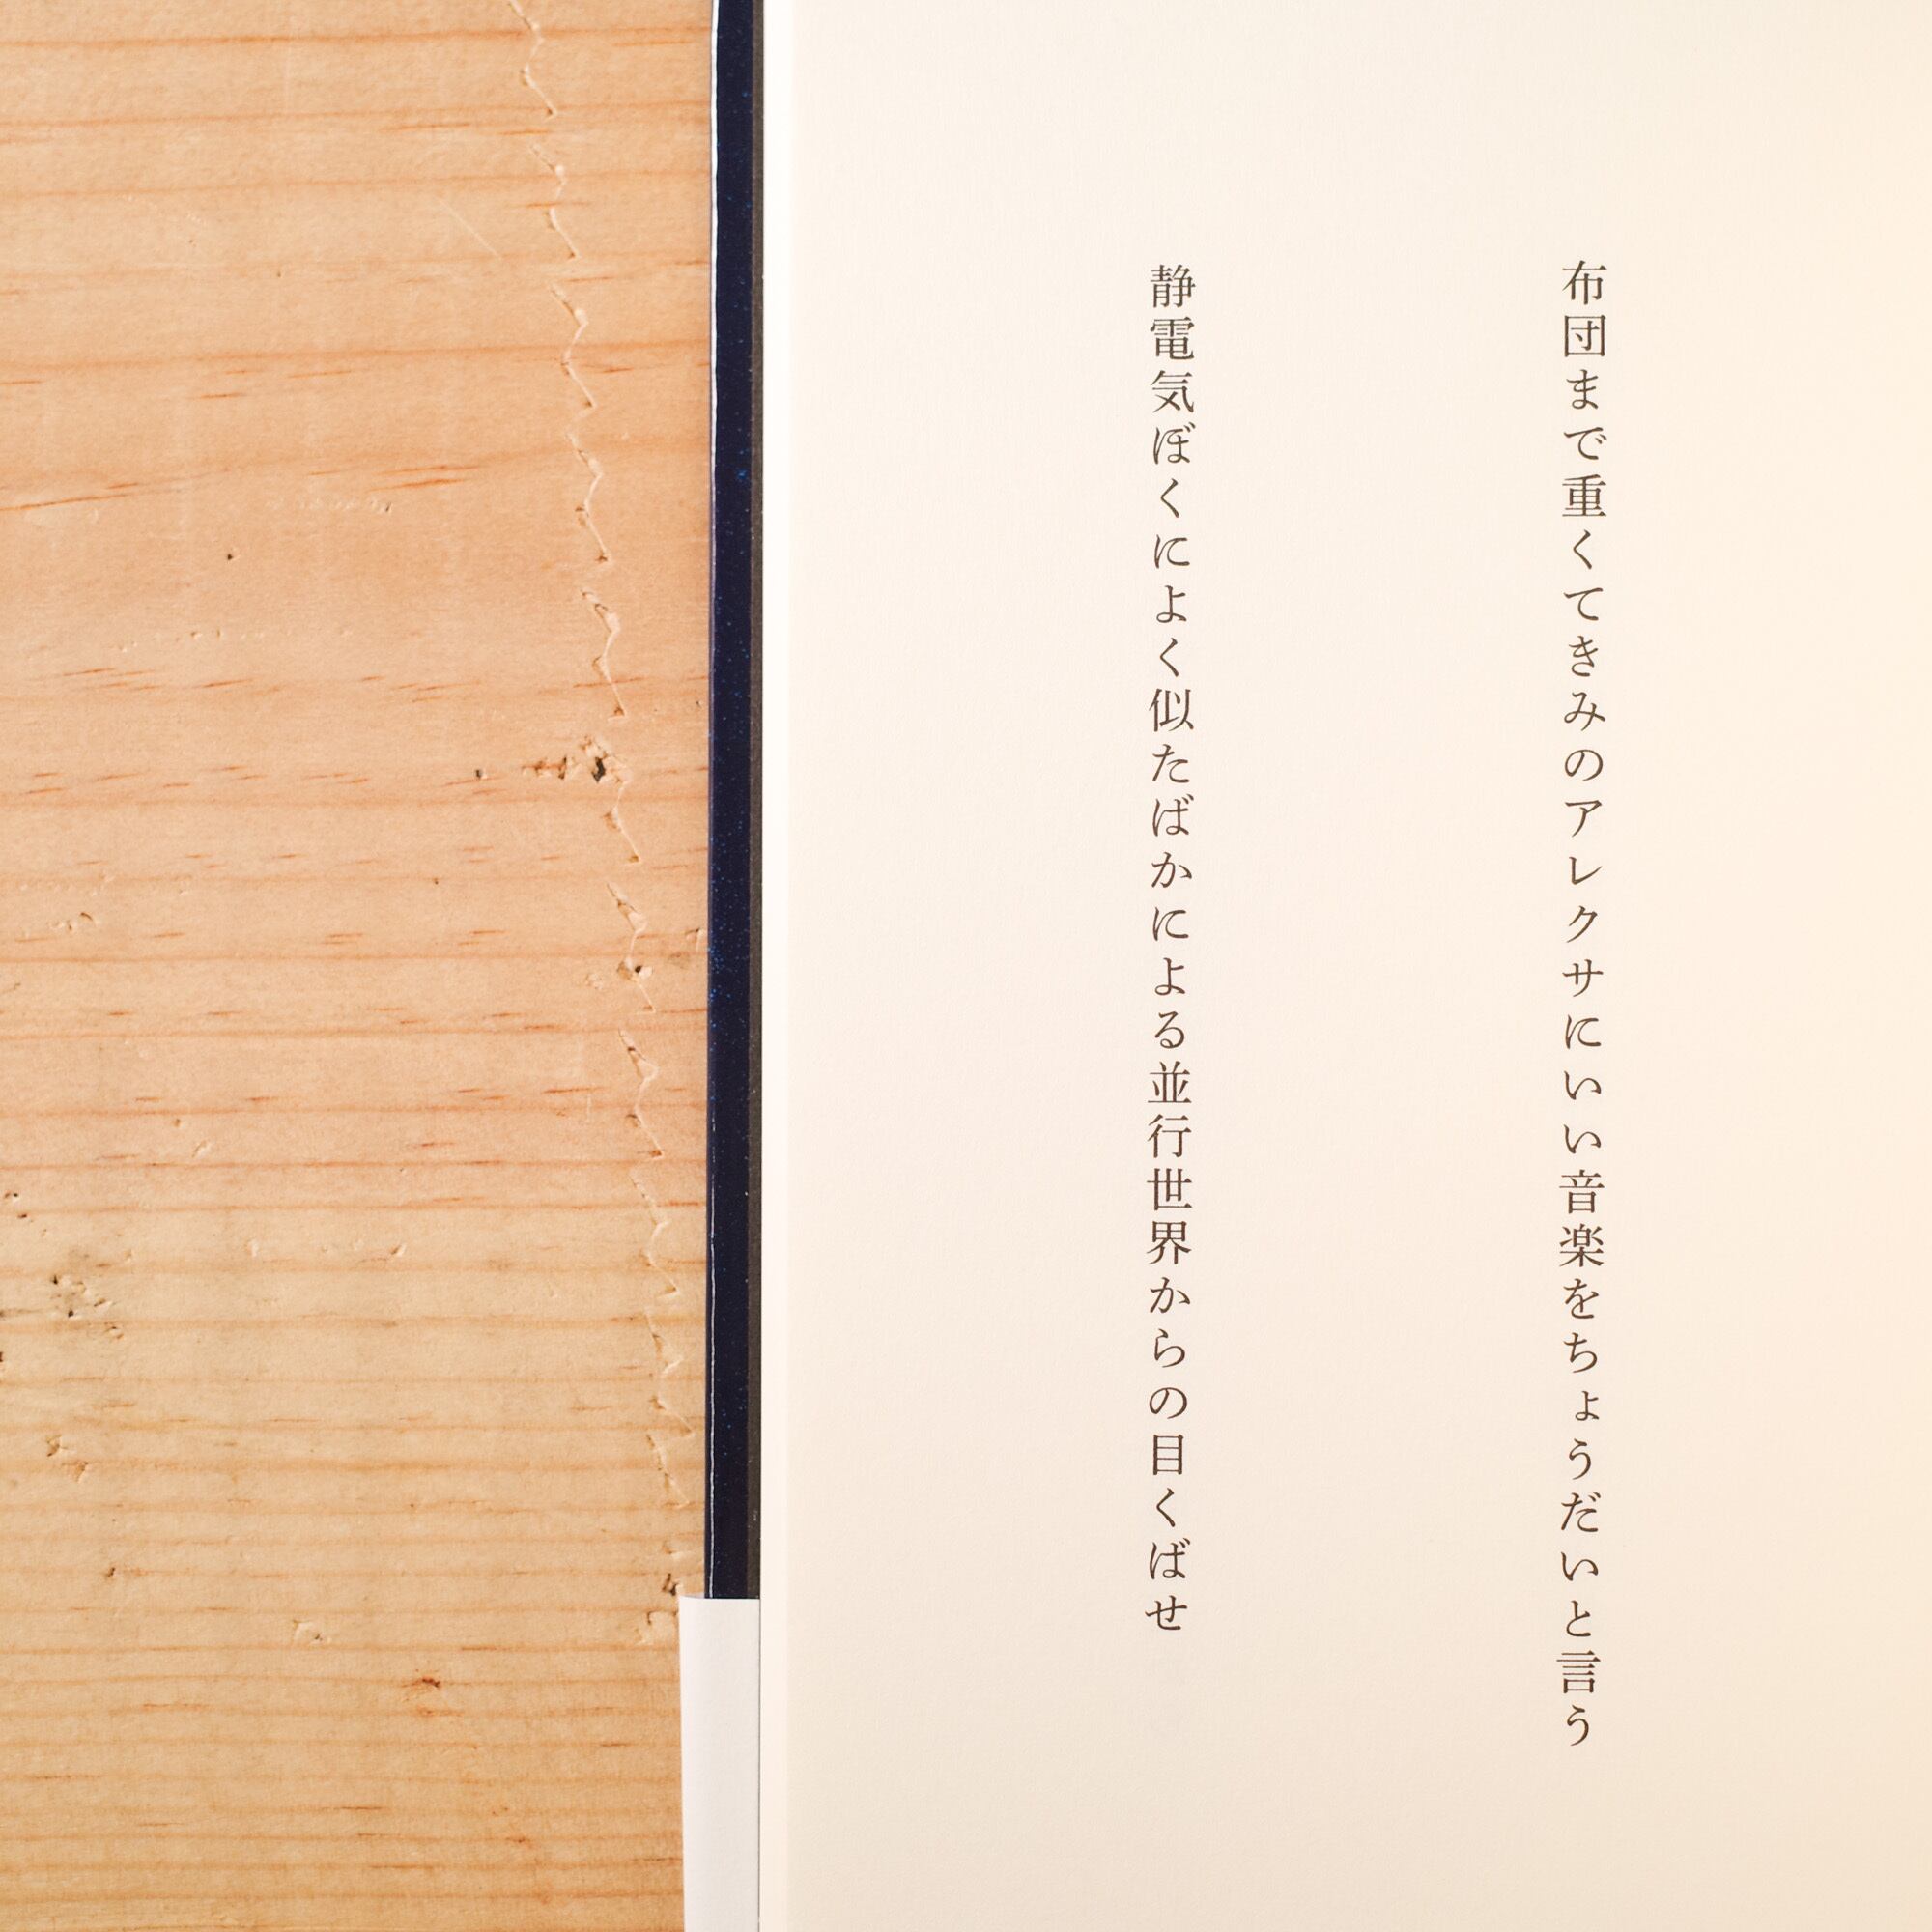 布団まで重くてきみのアレクサにいい音楽をちょうだいと言う
静電気ぼくによく似たばかによる並行世界からの目くばせ